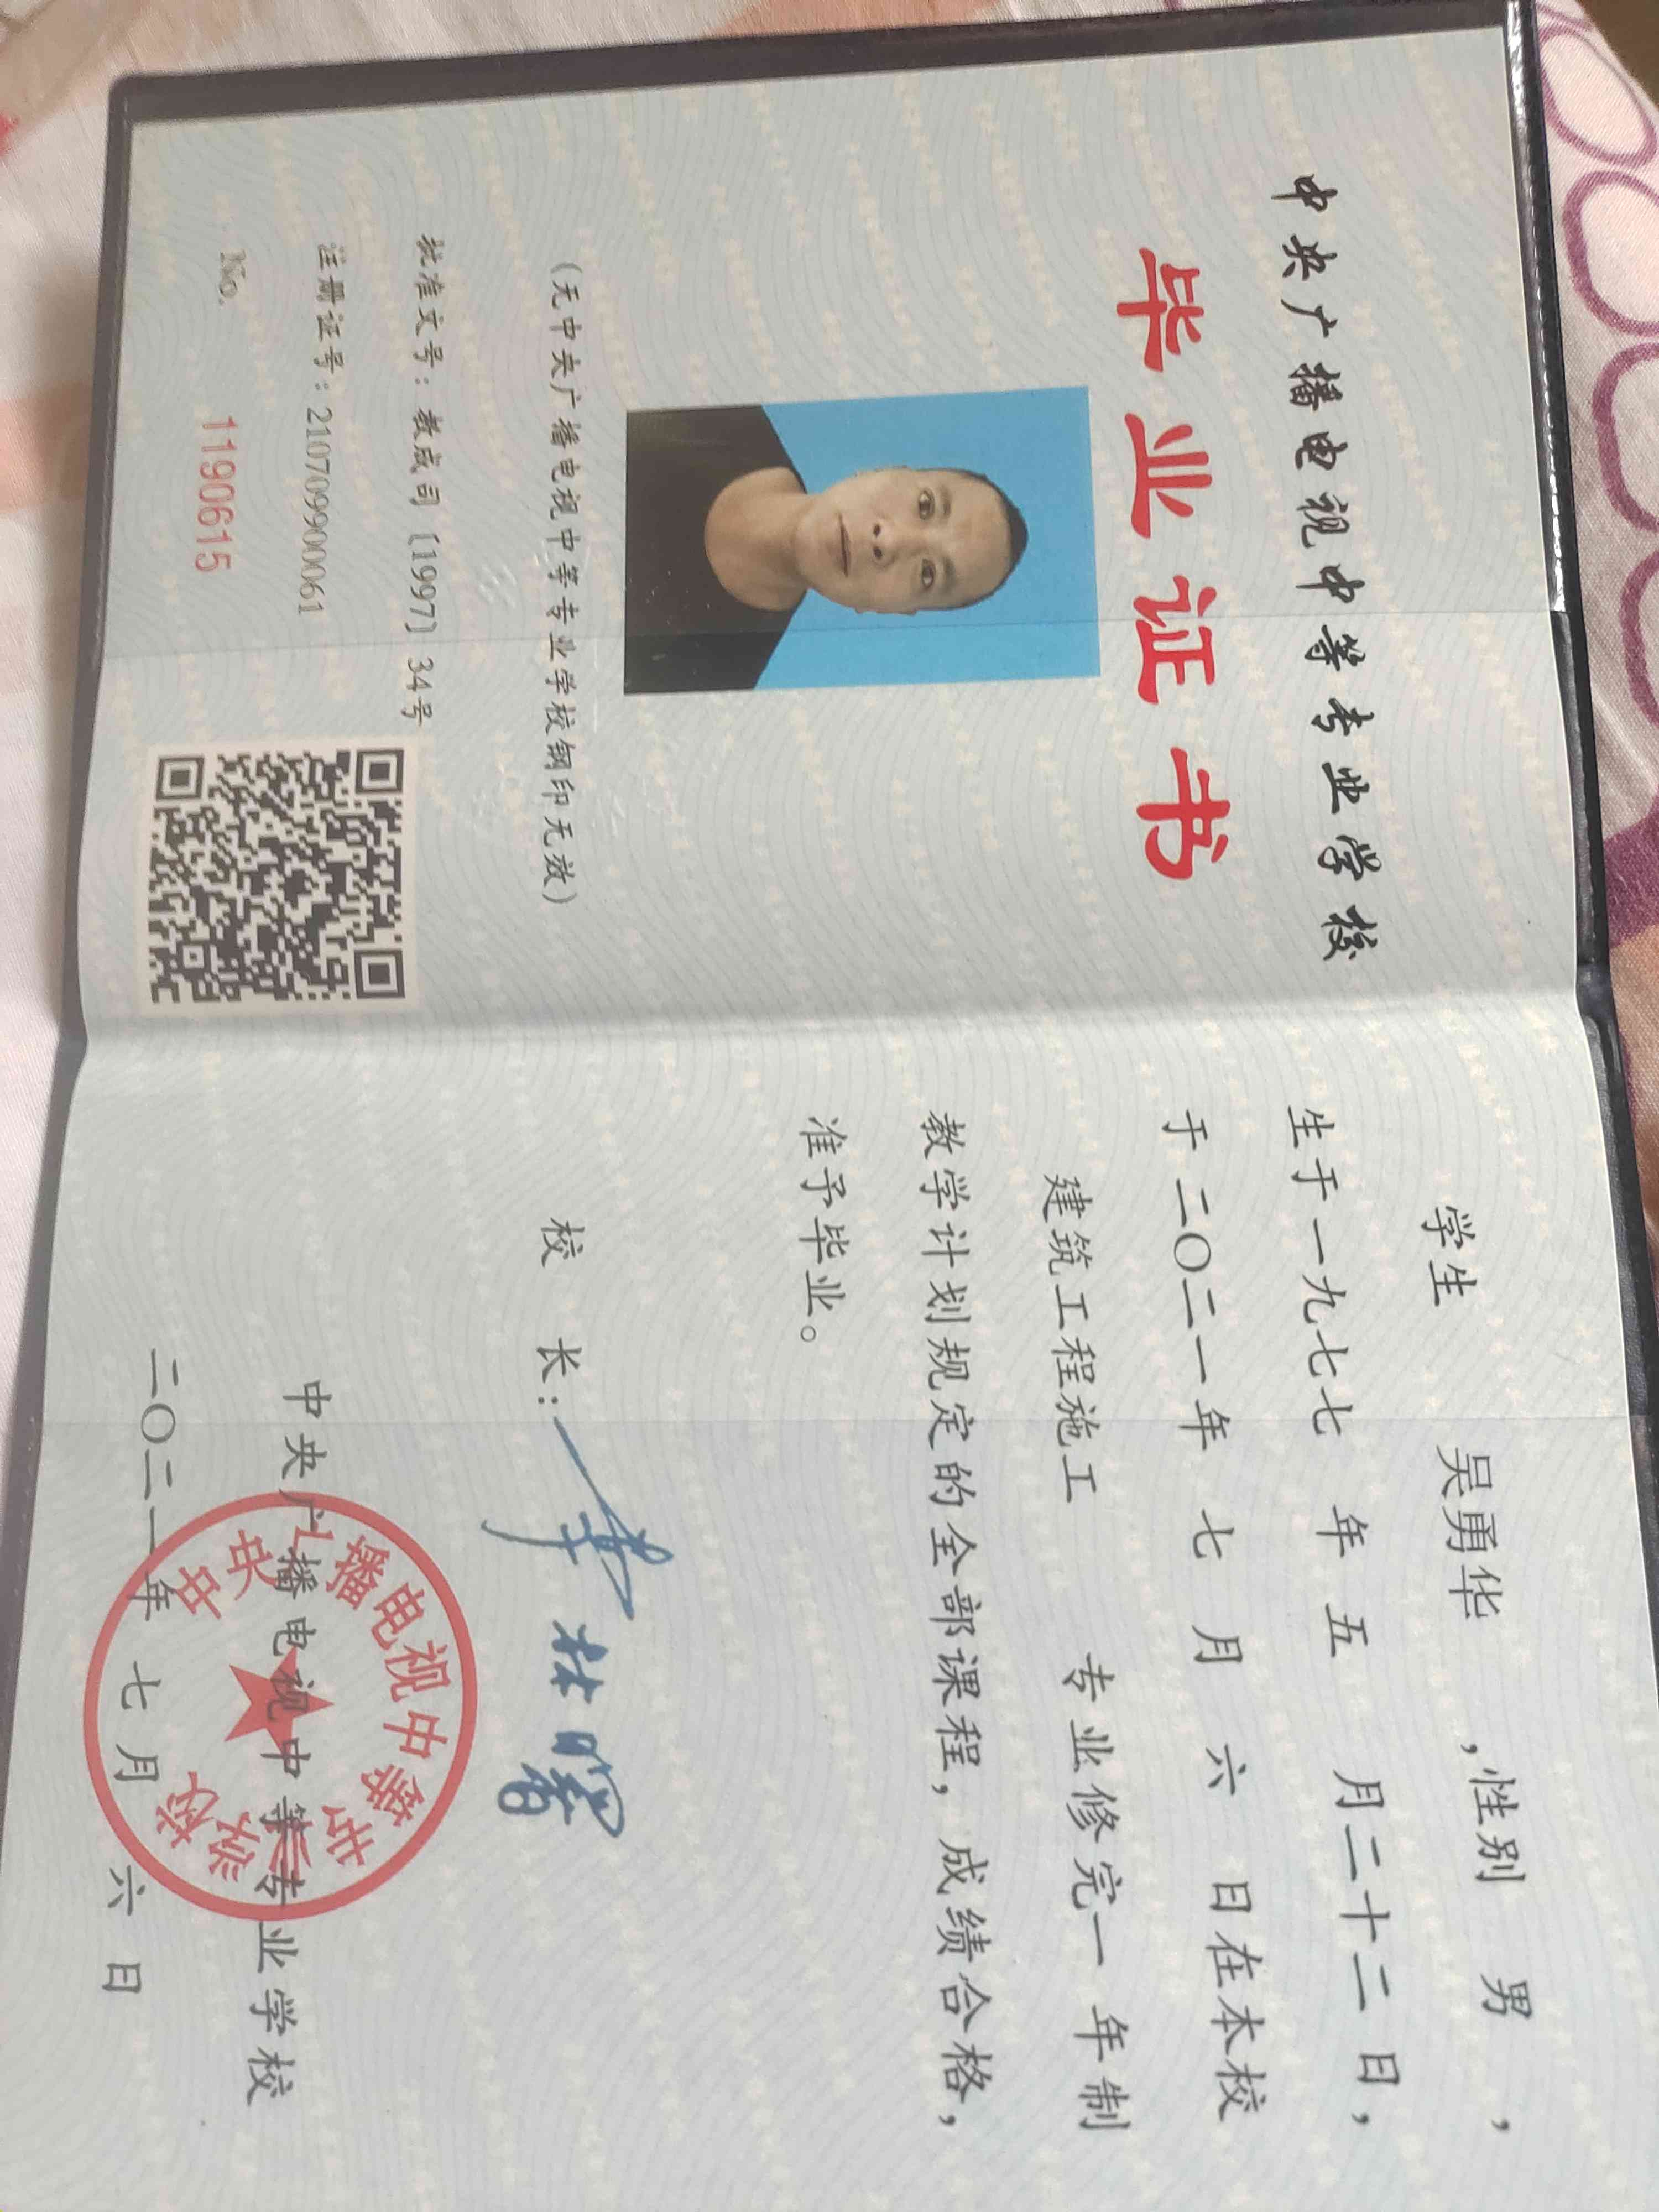 中央广播电视中等专业学校
毕业证书
(无中央广播电视中等专业学校钢印无效)
批准文号：教成司〔1997〕34号
注册证号：210709900061
No. 11906615
学生 吴勇华 ,性别 男 ,
生于一九七七 年 五 月二十二日,
于 二〇二一年 七 月 六 日在本校
建筑工程施工 专业修完一 年制
教学计划规定的全部课程, 成绩合格,
准予毕业。
校 长:
中央广播电视中等专业学校
二〇二一年 七 月 六 日
中央广播电视中等专业学校